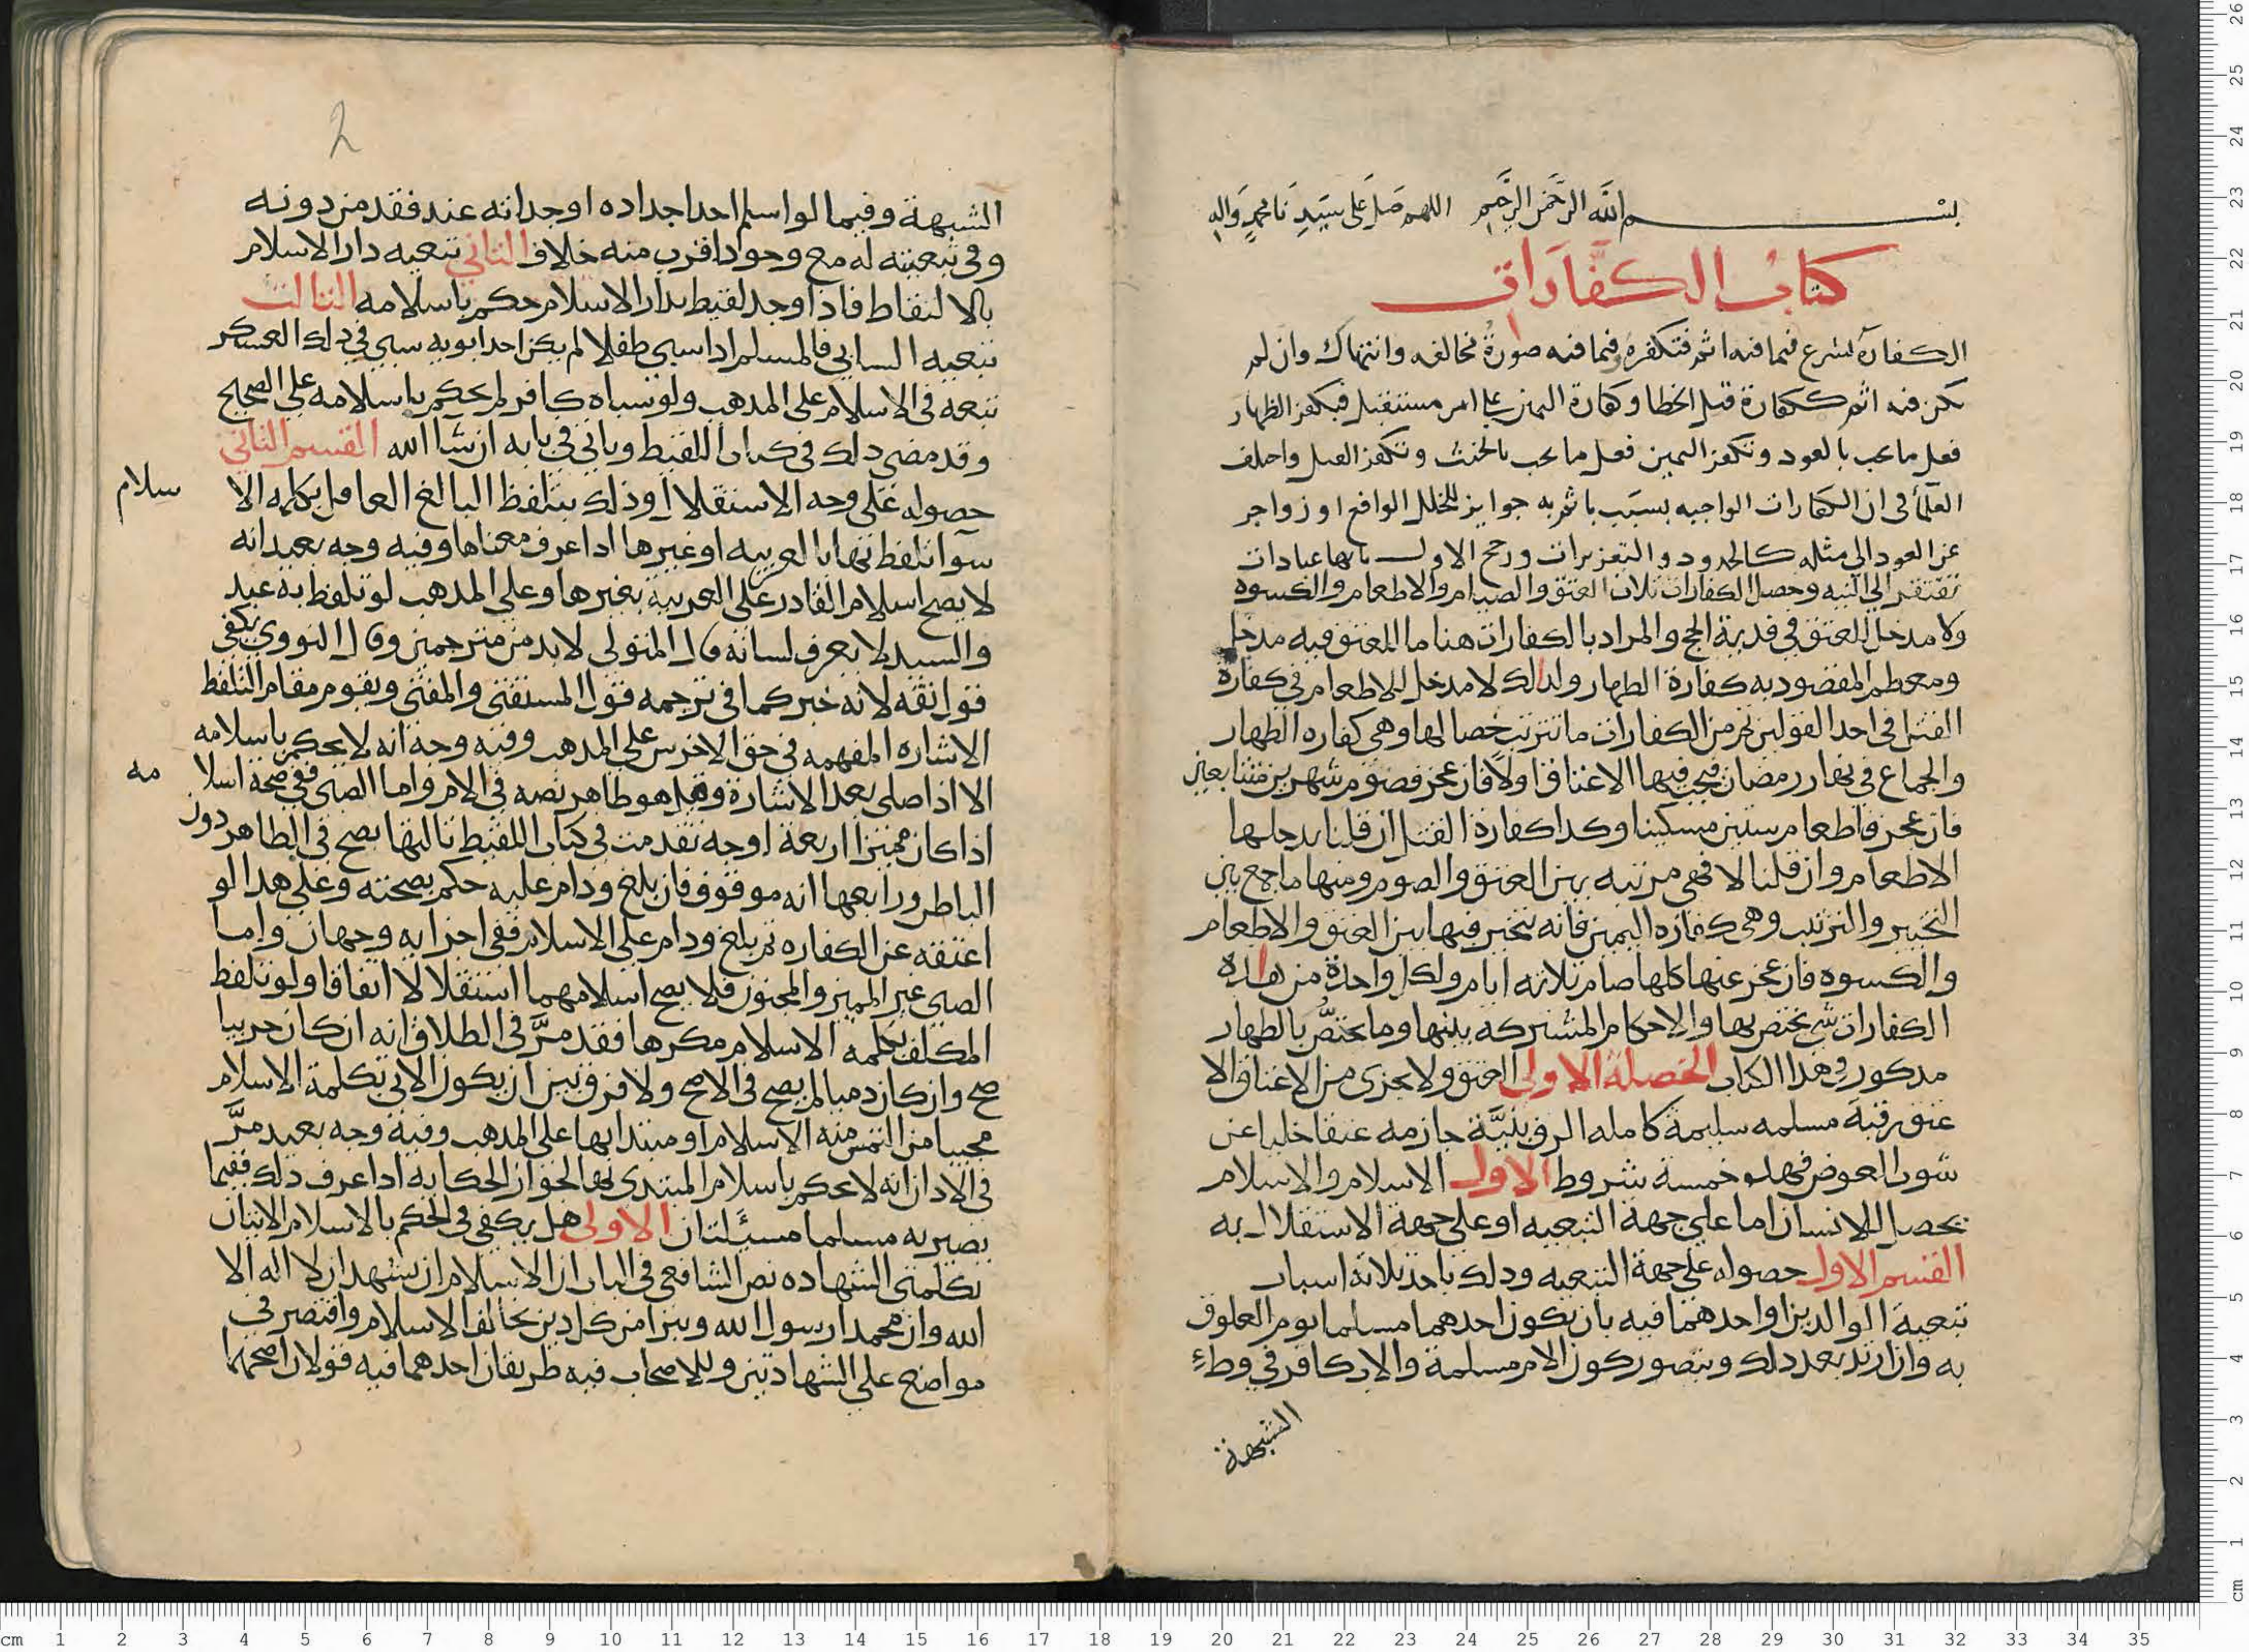 بسم الله الرحمن الرحيم اللهم صل على سيدنا محمد واله
كتاب الكفارات
الكفارة تشرع فيما فيه اثم فتكفره وفيما فيه صورة مخالفه وانتهاك وان لم
يكن فيه اثم ككفارة قتل الخطا وكفارة اليمين على امر مستقبل فيكفر الظهار
فعل ما يجب بالعود وتكفر اليمين فعل ما يجب بالحنث وتكفر القتل واختلف
العلما في ان الكفارات الواجبه بسبب ياثم به جوابر للخلل الواقع او زواجر
عن العود الى مثله كالحدود والتعزيرات ورجح الاول بانها عبادات
تفتقر الى النيه وخصال الكفارات ثلاث العتق والصيام والاطعام والكسوه
ولا مدخل للعتق في فدية الحج والمراد بالكفارات هنا ما للعتق فيه مدخل
ومعظم المقصود به كفارة الظهار ولذلك لا مدخل للاطعام في كفارة
القتل في احد القولين ثم من الكفارات ما تترتب خصالها وهي كفاره الظهار
والجماع في نهار رمضان فيجب فيها الاعتاق اولا فان عجز فصوم شهرين متتابعين
فان عجز فاطعام ستين مسكينا وكذا كفارة القتل ان قلنا يدخلها
الاطعام وان قلنا لا فهي مرتبه بين العتق والصوم ومنها ما جمع بين
التخيير والترتيب وهي كفاره اليمين فانه يتخير فيها بين العتق والاطعام
والكسوه فان عجز عنها كلها صام ثلاثه ايام ولكل واحدة من هذه
الكفارات شي يختص بها والاحكام المشتركه بينها وما يختص بالظهار
مذكور في هذا الكتاب الخصلة الاولى العتق ولا يجزى من الاعتاق الا
عتق رقبة مسلمه سليمة كاملة الرق بنية جازمه عتقا خليا عن
شوب العوض فهذه خمسة شروط الاول الاسلام والاسلام
يحصل للانسان اما على جهة التبعيه او على جهة الاستقلال به
القسم الاول حصوله على جهة التبعيه وذلك باحد ثلاثة اسباب
تبعية الوالدين او احدهما فيه بان يكون احدهما مسلما يوم العلوق
به وان ارتد بعد ذلك ويتصور كون الام مسلمة والاب كافر في وطء
الشبهة
2
الشبهة وفيما لو اسلم احد اجداده او جداته عند فقد من دونه
وفي تبعيته له مع وجود اقرب منه خلاف الثاني تبعيه دار الاسلام
بالالتقاط فاذا وجد لقيط بدار الاسلام حكم باسلامه الثالث
تبعيه السابي فالمسلم اذا سبى طفلا لم يكن احد ابويه سبي في ذلك العسكر
تبعه في الاسلام على المذهب ولو سباه كافر لم يحكم باسلامه على الصحيح
وقد مضى ذلك في كتاب اللقيط وياتي في بابه ان شا الله القسم الثاني
حصوله على وجه الاستقلال وذلك بتلفظ البالغ العاقل بكلمه الا
سلام
سوا تلفظ بها بالعربيه او غيرها اذا عرف معناها وفيه وجه بعيد انه
لا يصح اسلام القادر على العربية بغيرها وعلى المذهب لو تلفظ به عبد
والسيد لا يعرف لسانه قال المتولى لابد من مترجمين وقال النووي يكفي
قول ثقه لانه خبر كما في ترجمه قول المستفتي والمفتي ويقوم مقام التلفظ
الاشاره المفهمه في حق الاخرس على المذهب وفيه وجه انه لا يحكم باسلامه
الا اذا صلى بعد الاشارة وقيل هو ظاهر نصه في الام واما الصبي ففي صحة اسلا
مه
اذا كان مميزا اربعة اوجه تقدمت في كتاب اللقيط ثالثها يصح في الظاهر دون
الباطن ورابعها انه موقوف فان بلغ ودام عليه حكم بصحته وعلى هذا لو
اعتقه عن الكفاره ثم بلغ ودام على الاسلام ففي اجزايه وجهان واما
الصبي غير المميز والمجنون فلا يصح اسلامهما استقلالا اتفاقا ولو تلفظ
المكلف بكلمه الاسلام مكرها فقد مر في الطلاق انه ان كان حربيا
صح وان كان ذميا لم يصح في الاصح ولا فرق بين ان يكون الاتي بكلمة الاسلام
مجيبا من التمس منه الاسلام او مبتدا بها على المذهب وفيه وجه بعيد مر
في الاذان انه لا يحكم باسلام المبتدي بها لجواز الحكايه اذا عرف ذلك ففيما
يصير به مسلما مسئلتان الاولى هل يكفي في الحكم بالاسلام الاتيان
بكلمتى الشهاده نص الشافعي في الباب ان الاسلام ان يشهد ان لا اله الا
الله وان محمدا رسول الله ويبرا من كل دين يخالف الاسلام واقتصر في
مواضع على الشهادتين وللاصحاب فيه طريقان احدهما فيه قولان اصحهما